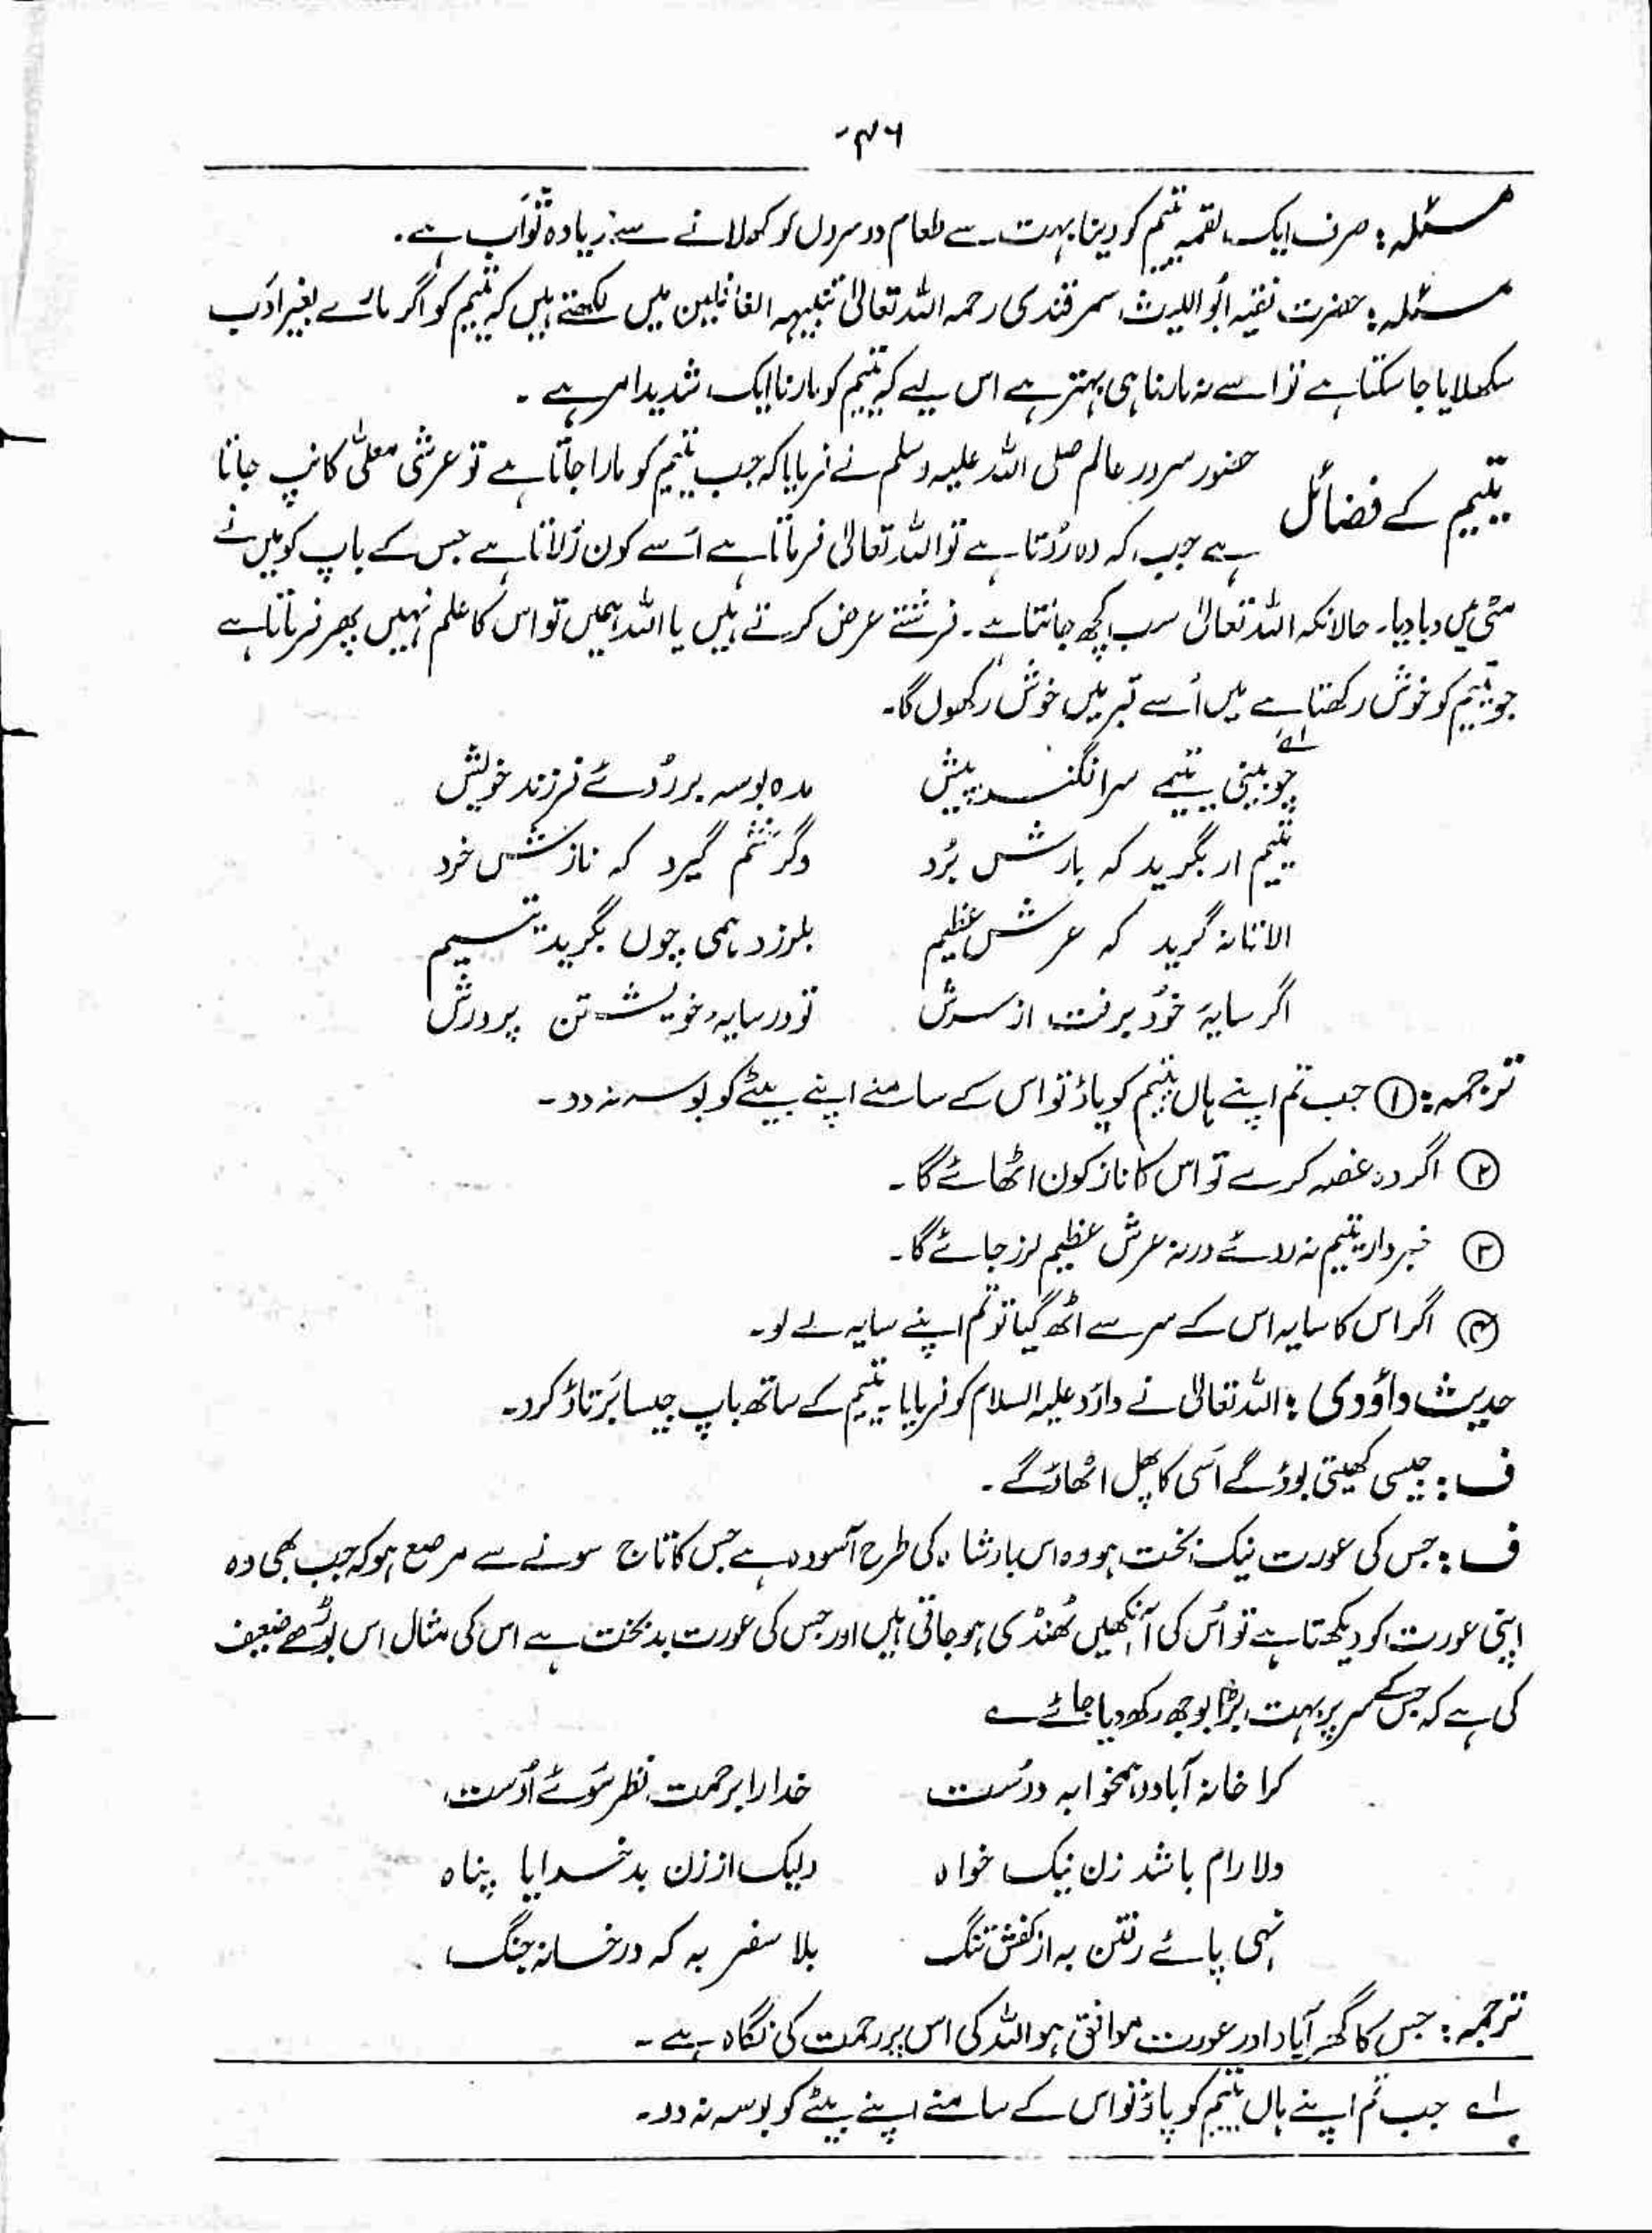 ۴۶
مسئلہ: صرف ایک لقمہ یتیم کو دینا بہت سے طعام دوسروں کو کھلانے سے زیادہ ثواب ہے۔
مسئلہ: حضرت فقیہ ابُو اللیث سمرقندی رحمہ اللہ تعالیٰ تنبیہہ الغافلین میں لکھتے ہیں کہ یتیم کو اگر مارے بغیر ادَب
سکھلایا جا سکتا ہے تو اسے نہ مارنا ہی بہتر ہے اس لیے کہ یتیم کو مارنا ایک شدید امر ہے ۔
یتیم کے فضائل
حضور سرور عالم صلی اللہ علیہ وسلم نے فرمایا کہ جب یتیم کو مارا جاتا ہے تو عرشِ معلیٰ کانپ جاتا
ہے جب کہ وہ روتا ہے تو اللہ تعالیٰ فرماتا ہے اُسے کون رُلاتا ہے جس کے باپ کو میں نے
مٹی میں دبا دیا۔ حالانکہ اللہ تعالیٰ سب کچھ جانتا ہے۔ فرشتے عرض کرتے ہیں یا اللہ ہمیں تو اس کا علم نہیں پھر فرماتا ہے
جو یتیم کو خوش رکھتا ہے میں اُسے قبر میں خوش رکھوں گا۔
چو بینی یتیمے سر افگندہ پیش مدہ بوسہ بر رُوئے فرزند خویش
یتیم ار بگرید کہ بارش بُرد وگر خشم گیرد کہ نازش خرد
الا تا نہ گرید کہ عرش عظیم بلرزد ہمی چوں بگرید یتیم
اگر سایہَ خوُد برفت از سرش تو در سایہء خویشتن پرورش
ترجمہ: ① جب تم اپنے ہاں یتیم کو پاؤ تو اس کے سامنے اپنے بیٹے کو بوسہ نہ دو۔
② اگر وہ غصہ کرے تو اس کا ناز کون اٹھائے گا۔
③ خبردار یتیم نہ روئے ورنہ عرش عظیم لرز جائے گا۔
④ اگر اس کا سایہ اس کے سر سے اٹھ گیا تو تم اپنے سایہ لے لو۔
حدیث داؤدی: اللہ تعالیٰ نے داؤد علیہ السلام کو فرمایا یتیم کے ساتھ باپ جیسا برَتاؤ کرو۔
ف: جیسی کھیتی بوؤ گے اُسی کا پھل اٹھاؤ گے۔
ف: جس کی عورت نیک بخت ہو وہ اس بادشاہ کی طرح آسودہ ہے جس کا تاج سونے سے مرصع ہو کہ جب بھی وہ
اپنی عورت کو دیکھتا ہے تو اُس کی آنکھیں ٹھنڈی ہو جاتی ہیں اور جس کی عورت بدبخت ہے اس کی مثال اس بوڑھے ضعیف
کی ہے کہ جس کے سر پر بہت بڑا بوجھ رکھ دیا جائے ے
کرا خانہ آباد و ہمخوابہ دوُست خدا را برحمت نظر سوُئے اوُست
دلارام باشد زن نیک خواہ ولیک از زن بد خدایا پناہ
تہی پائے رفتن بہ از کفش تنگ بلا سفر بہ کہ در خانہ جنگ
ترجمہ: جس کا گھر آباد اور عورت موافق ہو اللہ کی اس پر رحمت کی نگاہ ہے۔
لے جب تم اپنے ہاں یتیم کو پاؤ تو اس کے سامنے اپنے بیٹے کو بوسہ نہ دو۔